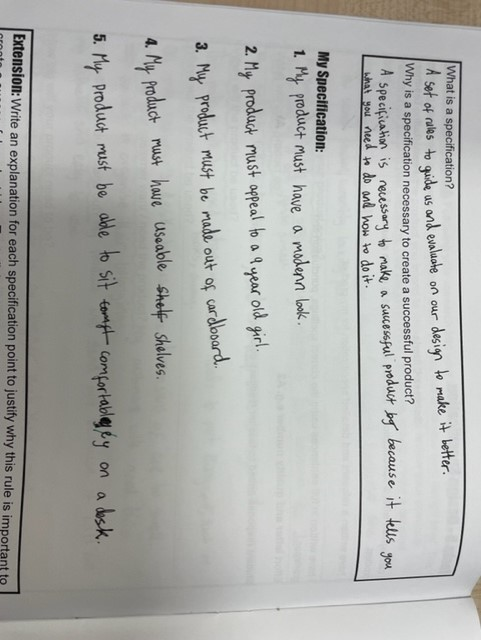 What is a specification?
A set of rules to guide us and evaluate on our design to make it better.
Why is a specification necessary to create a successful product?
A specification is necessary to make a successful product because it tells you
what you need to do and how to do it.
My Specification:
1. My product must have a modern look.
2. My product must appeal to a 9 year old girl.
3. My product must be made out of cardboard.
4. My product must have useable shelves.
5. My product must be able to sit comfortably on a desk.
Extension: Write an explanation for each specification point to justify why this rule is important to